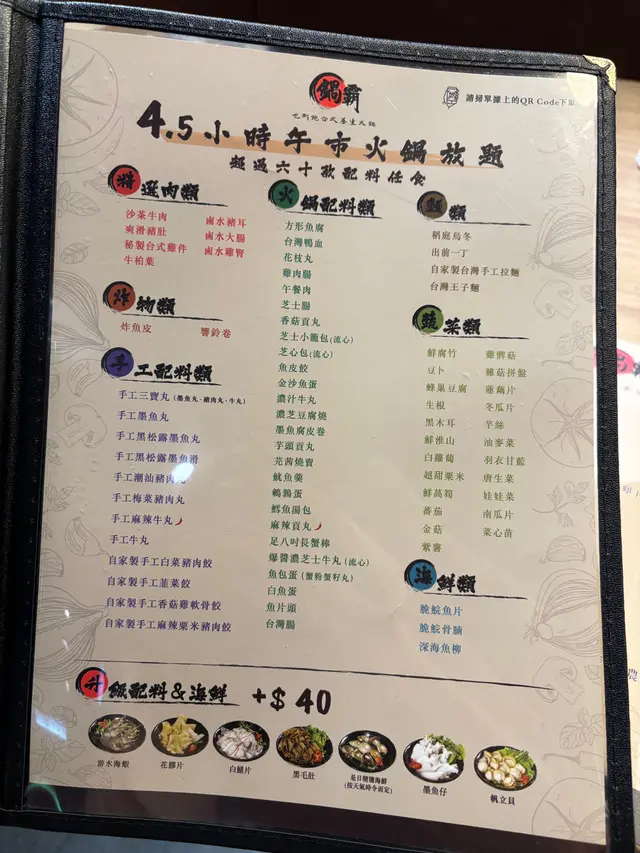 鍋霸
請掃單據上的QR Code下單
4.5小時午市火鍋放題
超過六十款配料任食
精選肉類
沙茶牛肉
爽滑豬肚
秘製台式雞件
牛柏葉
鹵水豬耳
鹵水大腸
鹵水雞腎
炸物類
炸魚皮
響鈴卷
手工配料類
手工三寶丸（墨魚丸、豬肉丸、牛丸）
手工墨魚丸
手工黑松露墨魚丸
手工黑松露墨魚滑
手工潮汕豬肉丸
手工梅菜豬肉丸
手工麻辣牛丸
手工牛丸
自家製手工白菜豬肉餃
自家製手工韮菜餃
自家製手工香菇雞軟骨餃
自家製手工麻辣粟米豬肉餃
火鍋配料類
方形魚腐
台灣鴨血
花枝丸
雞肉腸
午餐肉
芝士腸
香菇貢丸
芝士小籠包(流心)
芝心包(流心)
魚皮餃
金沙魚蛋
濃汁牛丸
濃芝豆腐燒
墨魚腐皮卷
芋頭貢丸
芫茜燒賣
魷魚羹
鵪鶉蛋
鱈魚湯包
麻辣貢丸
足八吋長蟹棒
爆醬濃芝士牛丸(流心)
魚包蛋(蟹粉蟹籽丸)
白魚蛋
魚片頭
台灣腸
麵類
稻庭烏冬
出前一丁
自家製台灣手工拉麵
台灣王子麵
蔬菜類
鮮腐竹
豆卜
蜂巢豆腐
生根
黑木耳
鮮淮山
白蘿蔔
超甜粟米
鮮萵筍
蕃茄
金菇
紫薯
雞髀菇
雜菇拼盤
蓮藕片
冬瓜片
芋絲
油麥菜
羽衣甘藍
唐生菜
娃娃菜
南瓜片
菜心苗
海鮮類
脆鯇魚片
脆鯇骨腩
深海魚柳
升級配料&海鮮 +$40
游水海蝦
花膠片
白鱔片
黑毛肚
是日精選海鮮
(按天氣時令而定)
墨魚仔
帆立貝